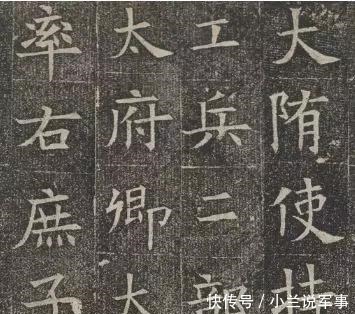 大隋使持
工兵二部
太府卿
率右庶子
快传号 / 小兰说军事